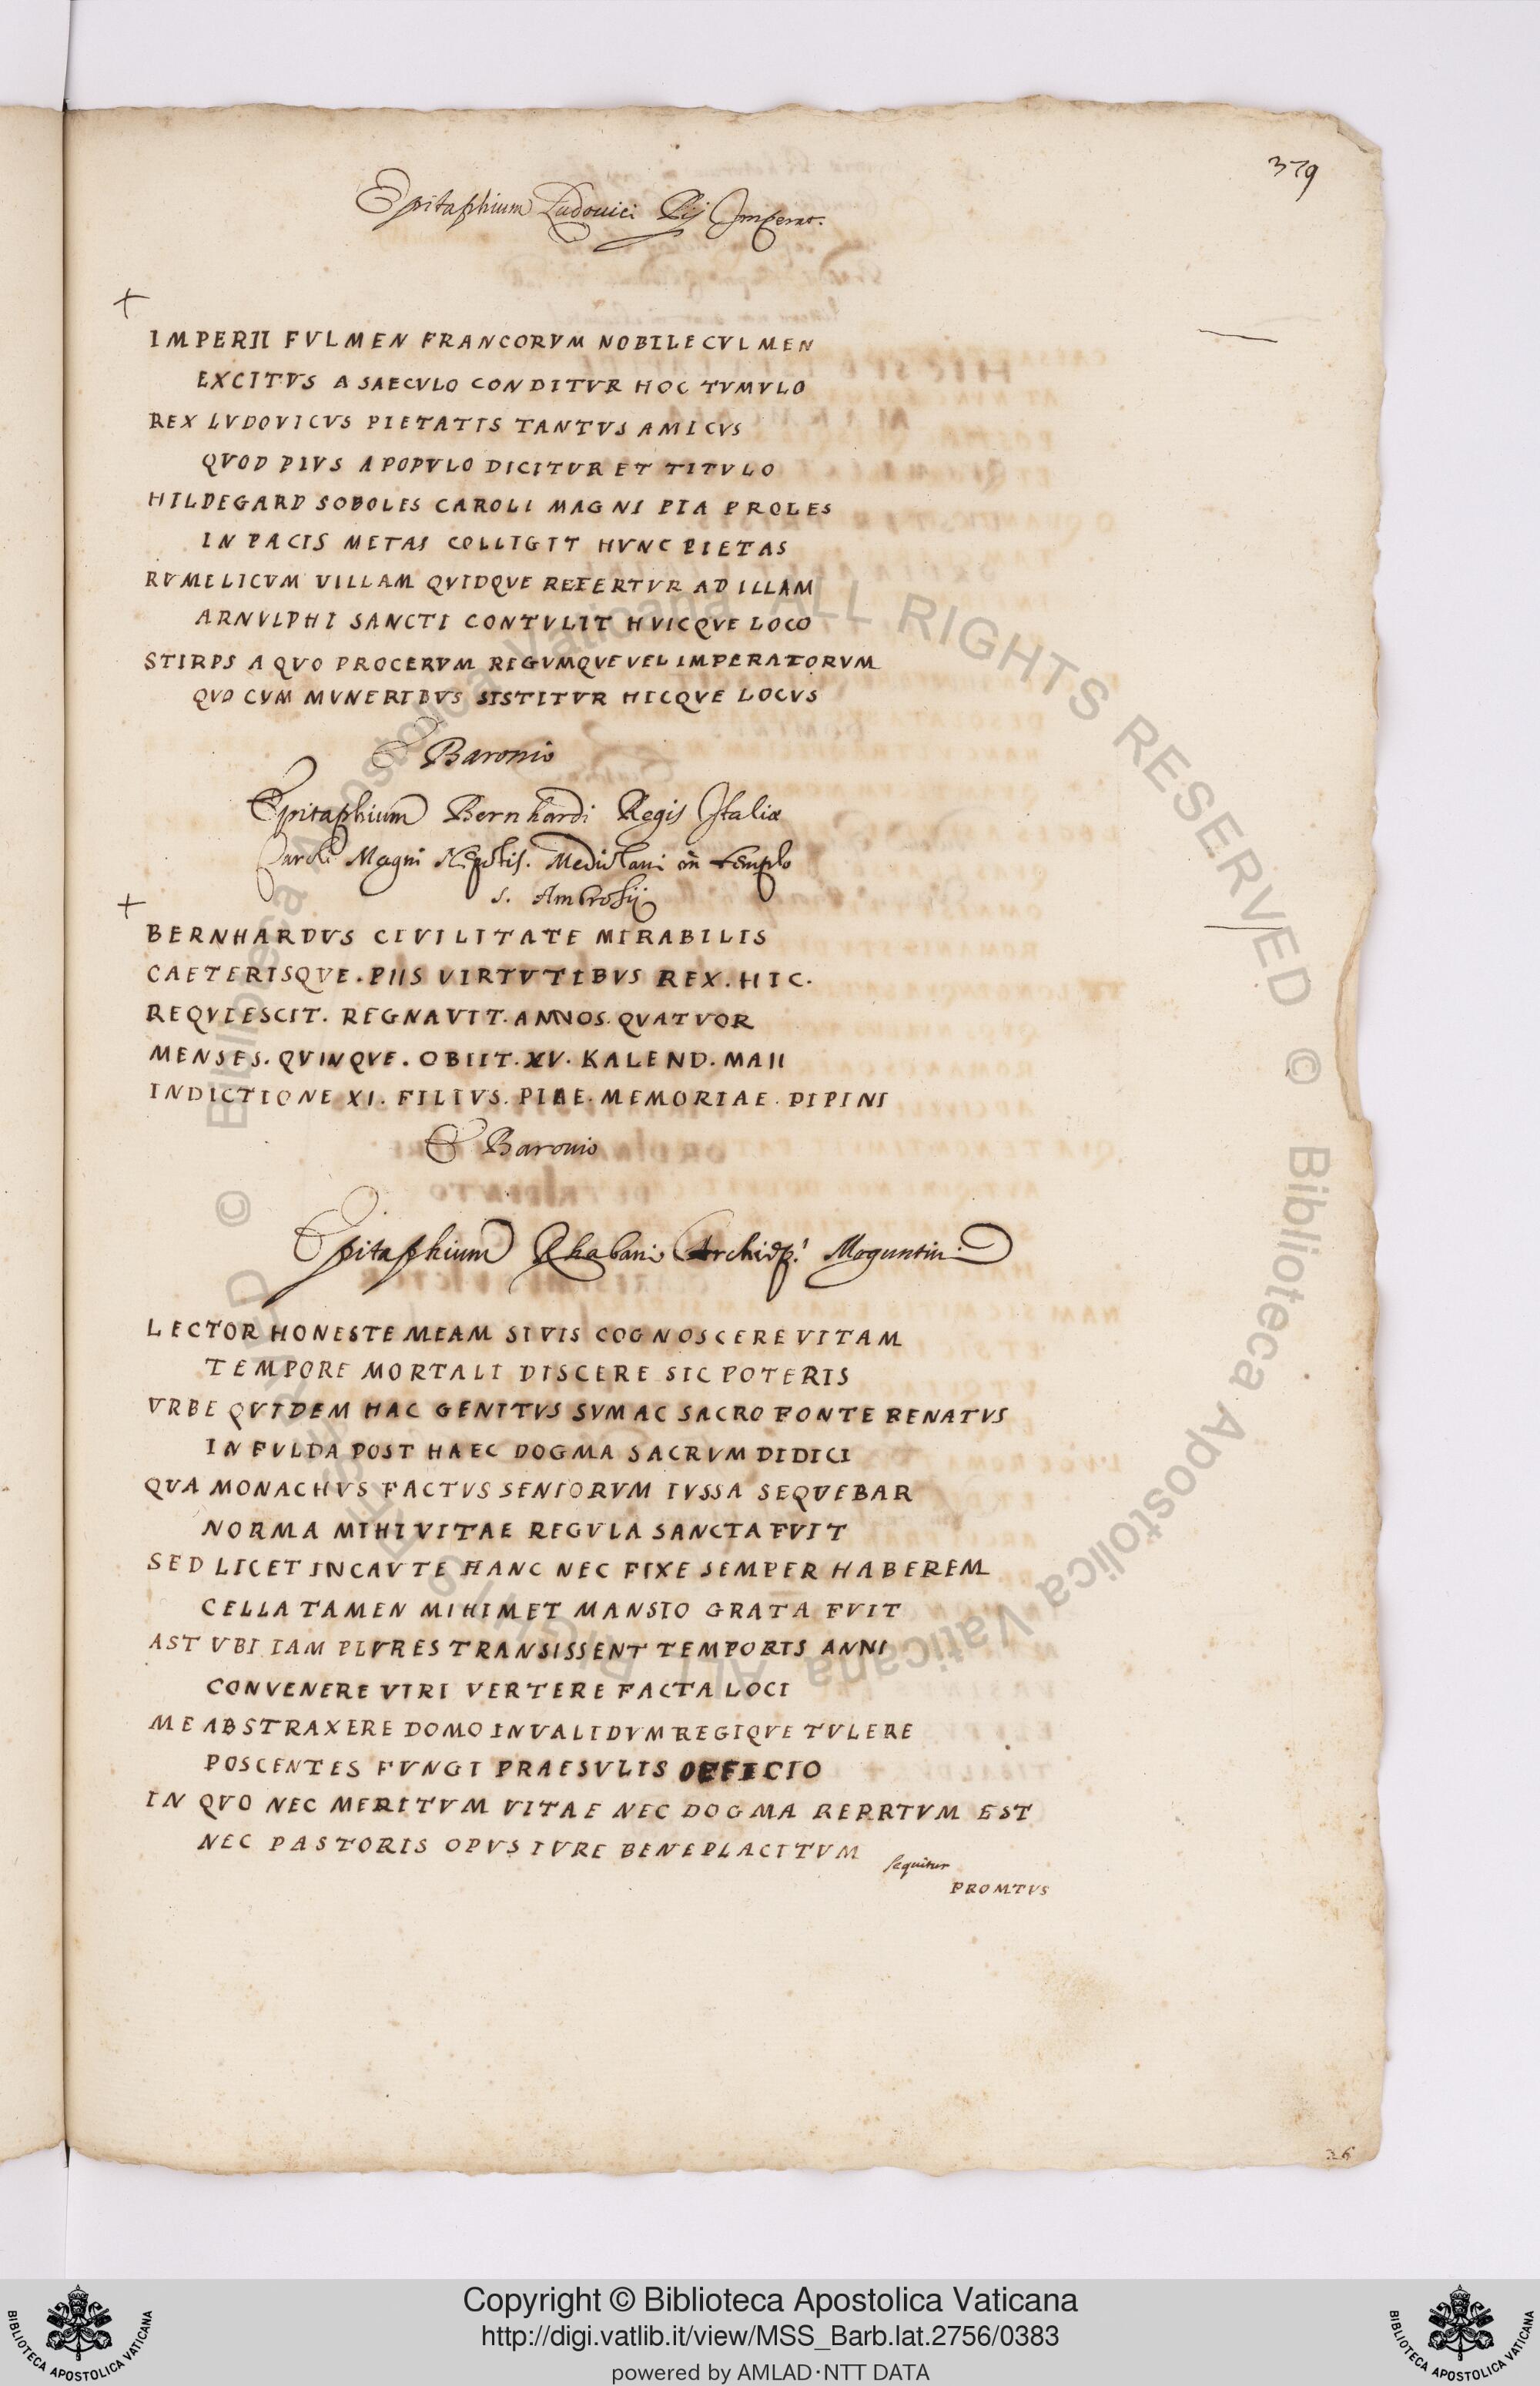 379
Epitaphium Ludovici Pij Imperat.
+
IMPERII FVLMEN FRANCORVM NOBILE CVLMEN
EXCITVS A SAECVLO CONDITVR HOC TVMVLO
REX LVDOVICVS PIETATIS TANTVS AMICVS
QVOD PIVS A POPVLO DICITVR ET TITVLO
HILDEGARD SOBOLES CAROLI MAGNI PIA PROLES
IN PACIS METAS COLLIGIT HVNC PIETAS
RVMELICVM VILLAM QVIDQVE REFERTVR AD ILLAM
ARNVLPHI SANCTI CONTVLIT HVICQVE LOCO
STIRPS A QVO PROCERVM REGVMQVE VEL IMPERATORVM
QVO CVM MVNERIBVS SISTITVR HICQVE LOCVS
E Baronio
Epitaphium Bernhardi Regis Italiæ
Caroli Magni Nepotis. Mediolani in templo
+
S. Ambrosij
BERNHARDVS CIVILITATE MIRABILIS
CAETERISQVE . PIIS VIRTVTIBVS REX . HIC .
REQVIESCIT . REGNAVIT . ANNOS . QVATVOR
MENSES . QVINQVE . OBIIT . XV . KALEND . MAII
INDICTIONE XI . FILIVS . PIAE . MEMORIAE . PIPINI
E Baronio
Epitaphium Rhabani Archiep.i Moguntini
LECTOR HONESTE MEAM SI VIS COGNOSCERE VITAM
TEMPORE MORTALI DISCERE SIC POTERIS
VRBE QVIDEM HAC GENITVS SVM AC SACRO FONTE RENATVS
IN FVLDA POST HAEC DOGMA SACRVM DIDICI
QVA MONACHVS FACTVS SENIORVM IVSSA SEQVEBAR
NORMA MIHI VITAE REGVLA SANCTA FVIT
SED LICET INCAVTE HANC NEC FIXE SEMPER HABEREM
CELLA TAMEN MIHIMET MANSIO GRATA FVIT
AST VBI IAM PLVRES TRANSISSENT TEMPORIS ANNI
CONVENERE VIRI VERTERE FACTA LOCI
ME ABSTRAXERE DOMO INVALIDVM REGIQVE TVLERE
POSCENTES FVNGI PRAESVLIS OFFICIO
IN QVO NEC MERITVM VITAE NEC DOGMA REPRTVM EST
NEC PASTORIS OPVS IVRE BENEPLACITVM
sequitur
PROMTVS
26
© Biblioteca Apostolica Vaticana ALL RIGHTS RESERVED © Biblioteca Apostolica Vaticana ALL RIGHTS RESERVED
BIBLIOTECA APOSTOLICA VATICANA
Copyright © Biblioteca Apostolica Vaticana
http://digi.vatlib.it/view/MSS_Barb.lat.2756/0383
powered by AMLAD·NTT DATA
BIBLIOTECA APOSTOLICA VATICANA